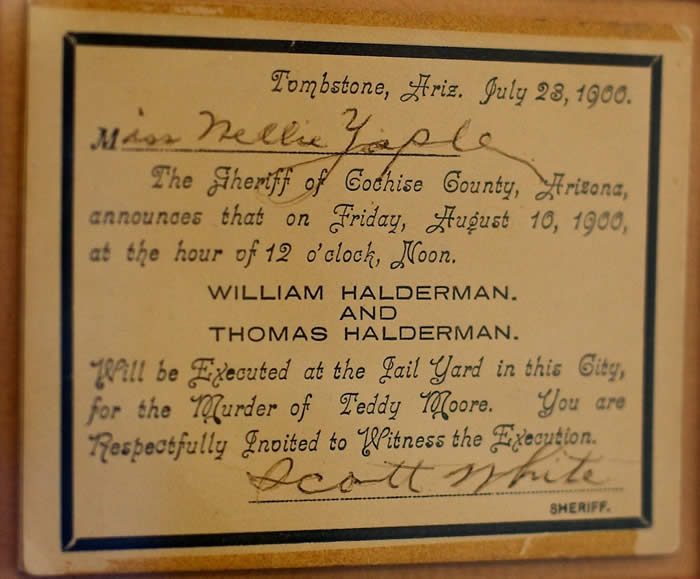 Tombstone, Ariz. July 23, 1900.
Miss Nellie Yaple
The Sheriff of Cochise County, Arizona,
announces that on Friday, August 10, 1900,
at the hour of 12 o'clock, Noon.
WILLIAM HALDERMAN.
AND
THOMAS HALDERMAN.
Will be Executed at the Jail Yard in this City,
for the Murder of Teddy Moore. You are
Respectfully Invited to Witness the Execution.
Scott White
SHERIFF.